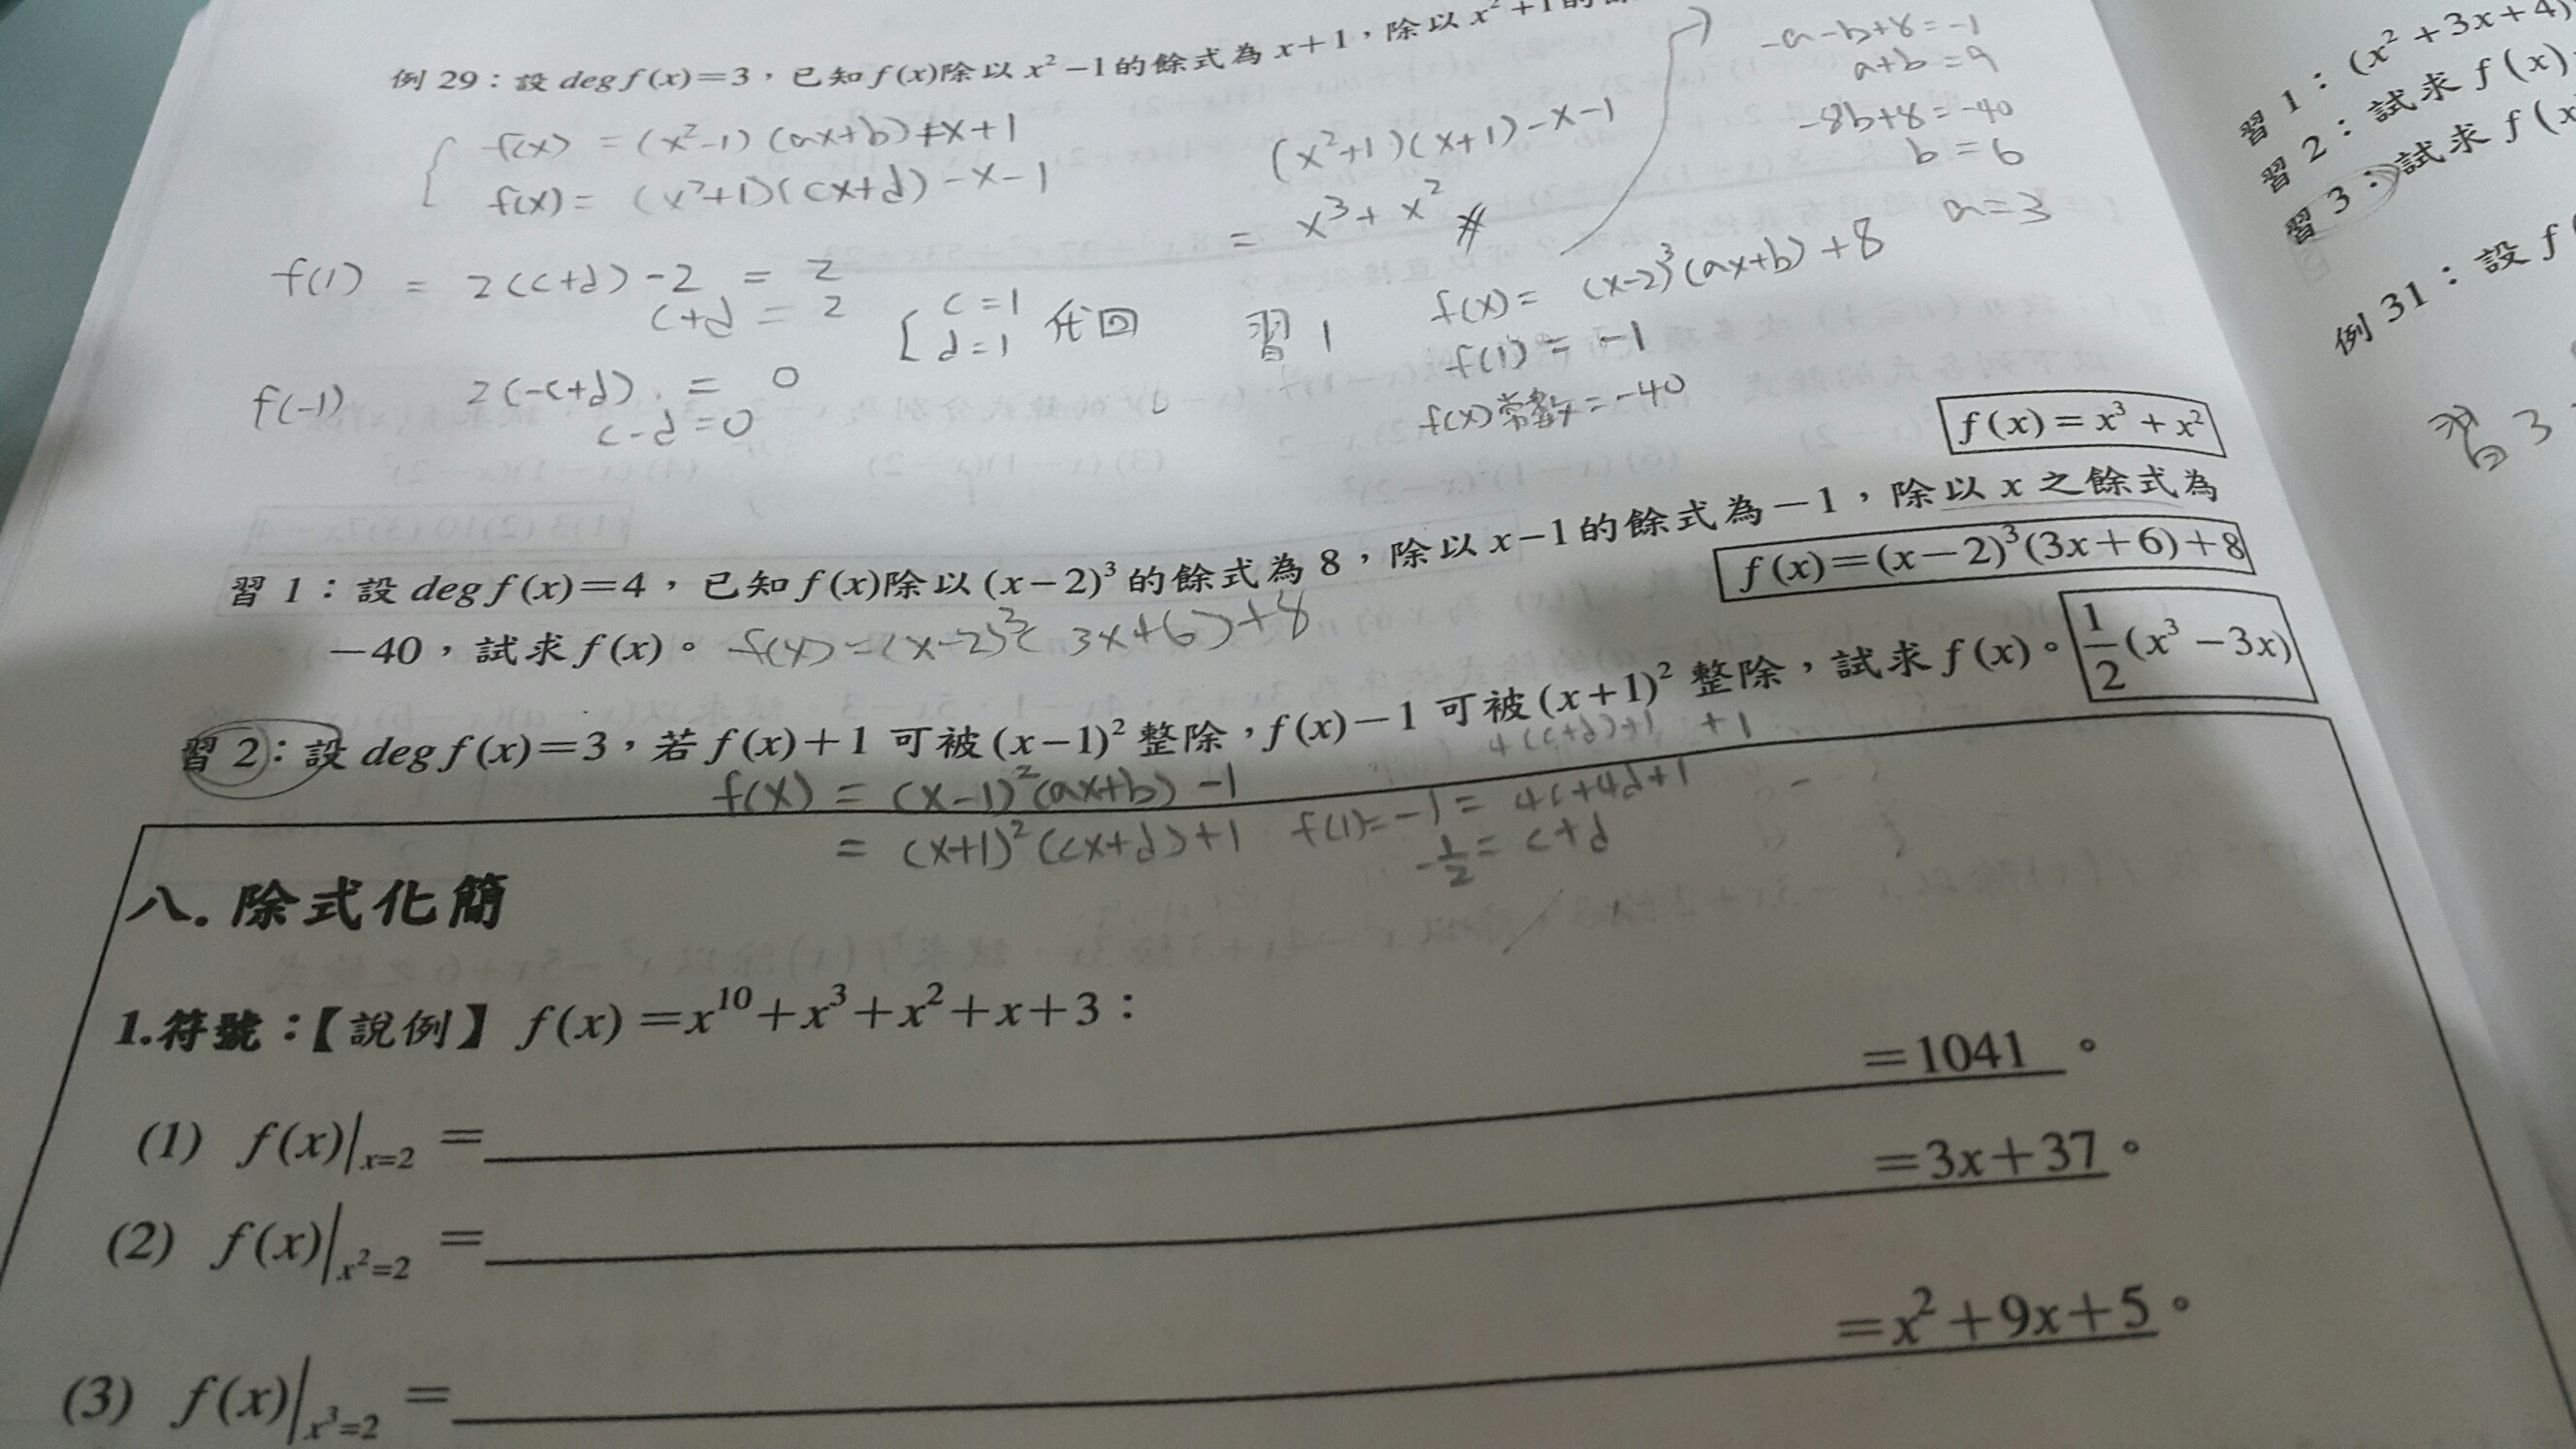 例 29：設 deg f(x)＝3，已知 f(x)除以 x²－1的餘式為 x＋1，除以 x²＋1的
f(x) = (x²-1)(ax+b)+x+1
f(x) = (x²+1)(cx+d)-x-1
(x²+1)(x+1)-x-1
= x³+x² #
-a-b+8=-1
a+b=9
-8b+8=-40
b=6
a=3
f(1) = 2(c+d)-2 = 2
c+d = 2
f(-1) 2(-c+d) = 0
c-d=0
c=1
d=1 代回
習 1 f(x) = (x-2)³(ax+b)+8
f(1) = -1
f(x)常數=-40
f(x)=x³+x²
習 1：設 deg f(x)＝4，已知 f(x)除以 (x－2)³ 的餘式為 8，除以 x－1的餘式為－1，除以 x 之餘式為
－40，試求 f(x)。 f(x)=(x-2)³(3x+6)+8
f(x)＝(x－2)³(3x＋6)＋8
習 2：設 deg f(x)＝3，若 f(x)＋1 可被 (x－1)² 整除，f(x)－1 可被 (x＋1)² 整除，試求 f(x)。 1/2(x³－3x)
4(c+d)+1 +1
f(x) = (x-1)²(ax+b)-1
= (x+1)²(cx+d)+1 f(1)=-1=4c+4d+1
-1/2=c+d
八. 除式化簡
1.符號：【說例】 f(x)＝x¹⁰＋x³＋x²＋x＋3：
(1) f(x)|x=2 ＝ ＝1041 。
(2) f(x)|x²=2 ＝ ＝3x＋37 。
(3) f(x)|x³=2 ＝ ＝x²＋9x＋5 。
習 1：(x²＋3x＋4)
習 2：試求 f(x)
習 3：試求 f(x
例 31：設 f
習 3